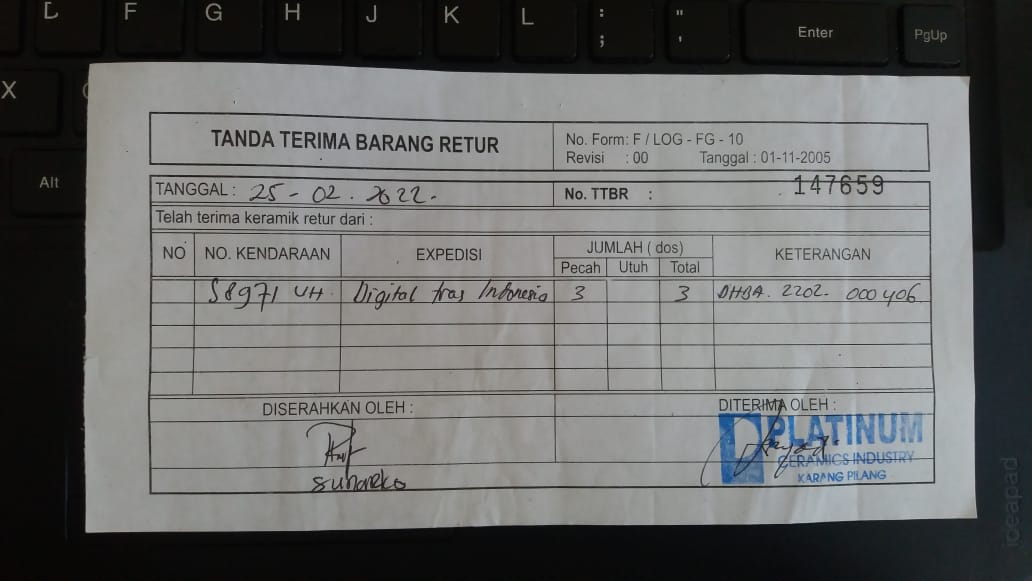 F G H J K L : ; " ' Enter PgUp
X
Alt
TANDA TERIMA BARANG RETUR
No. Form: F / LOG - FG - 10
Revisi : 00 Tanggal : 01-11-2005
TANGGAL : 25 - 02 . 2022 -
No. TTBR : 147659
Telah terima keramik retur dari :
NO NO. KENDARAAN EXPEDISI JUMLAH ( dos) KETERANGAN
Pecah Utuh Total
S 8971 UH. Digital tras Indonesia 3 3 DHBA. 2202. 000406
DISERAHKAN OLEH : DITERIMA OLEH :
PLATINUM
CERAMICS INDUSTRY
KARANG PILANG
suhaneko
ideapad